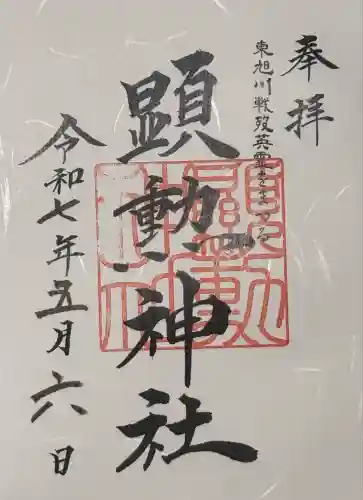 奉拝
東旭川戦歿英霊をまつる
顕勲神社
令和七年五月六日
顕勲神社